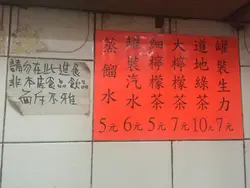 請勿在此進食
非本店食品飲品
面斥不雅
罐裝生力7元
道地綠茶10元
大檸檬茶7元
細檸檬茶5元
罐裝汽水6元
蒸餾水5元